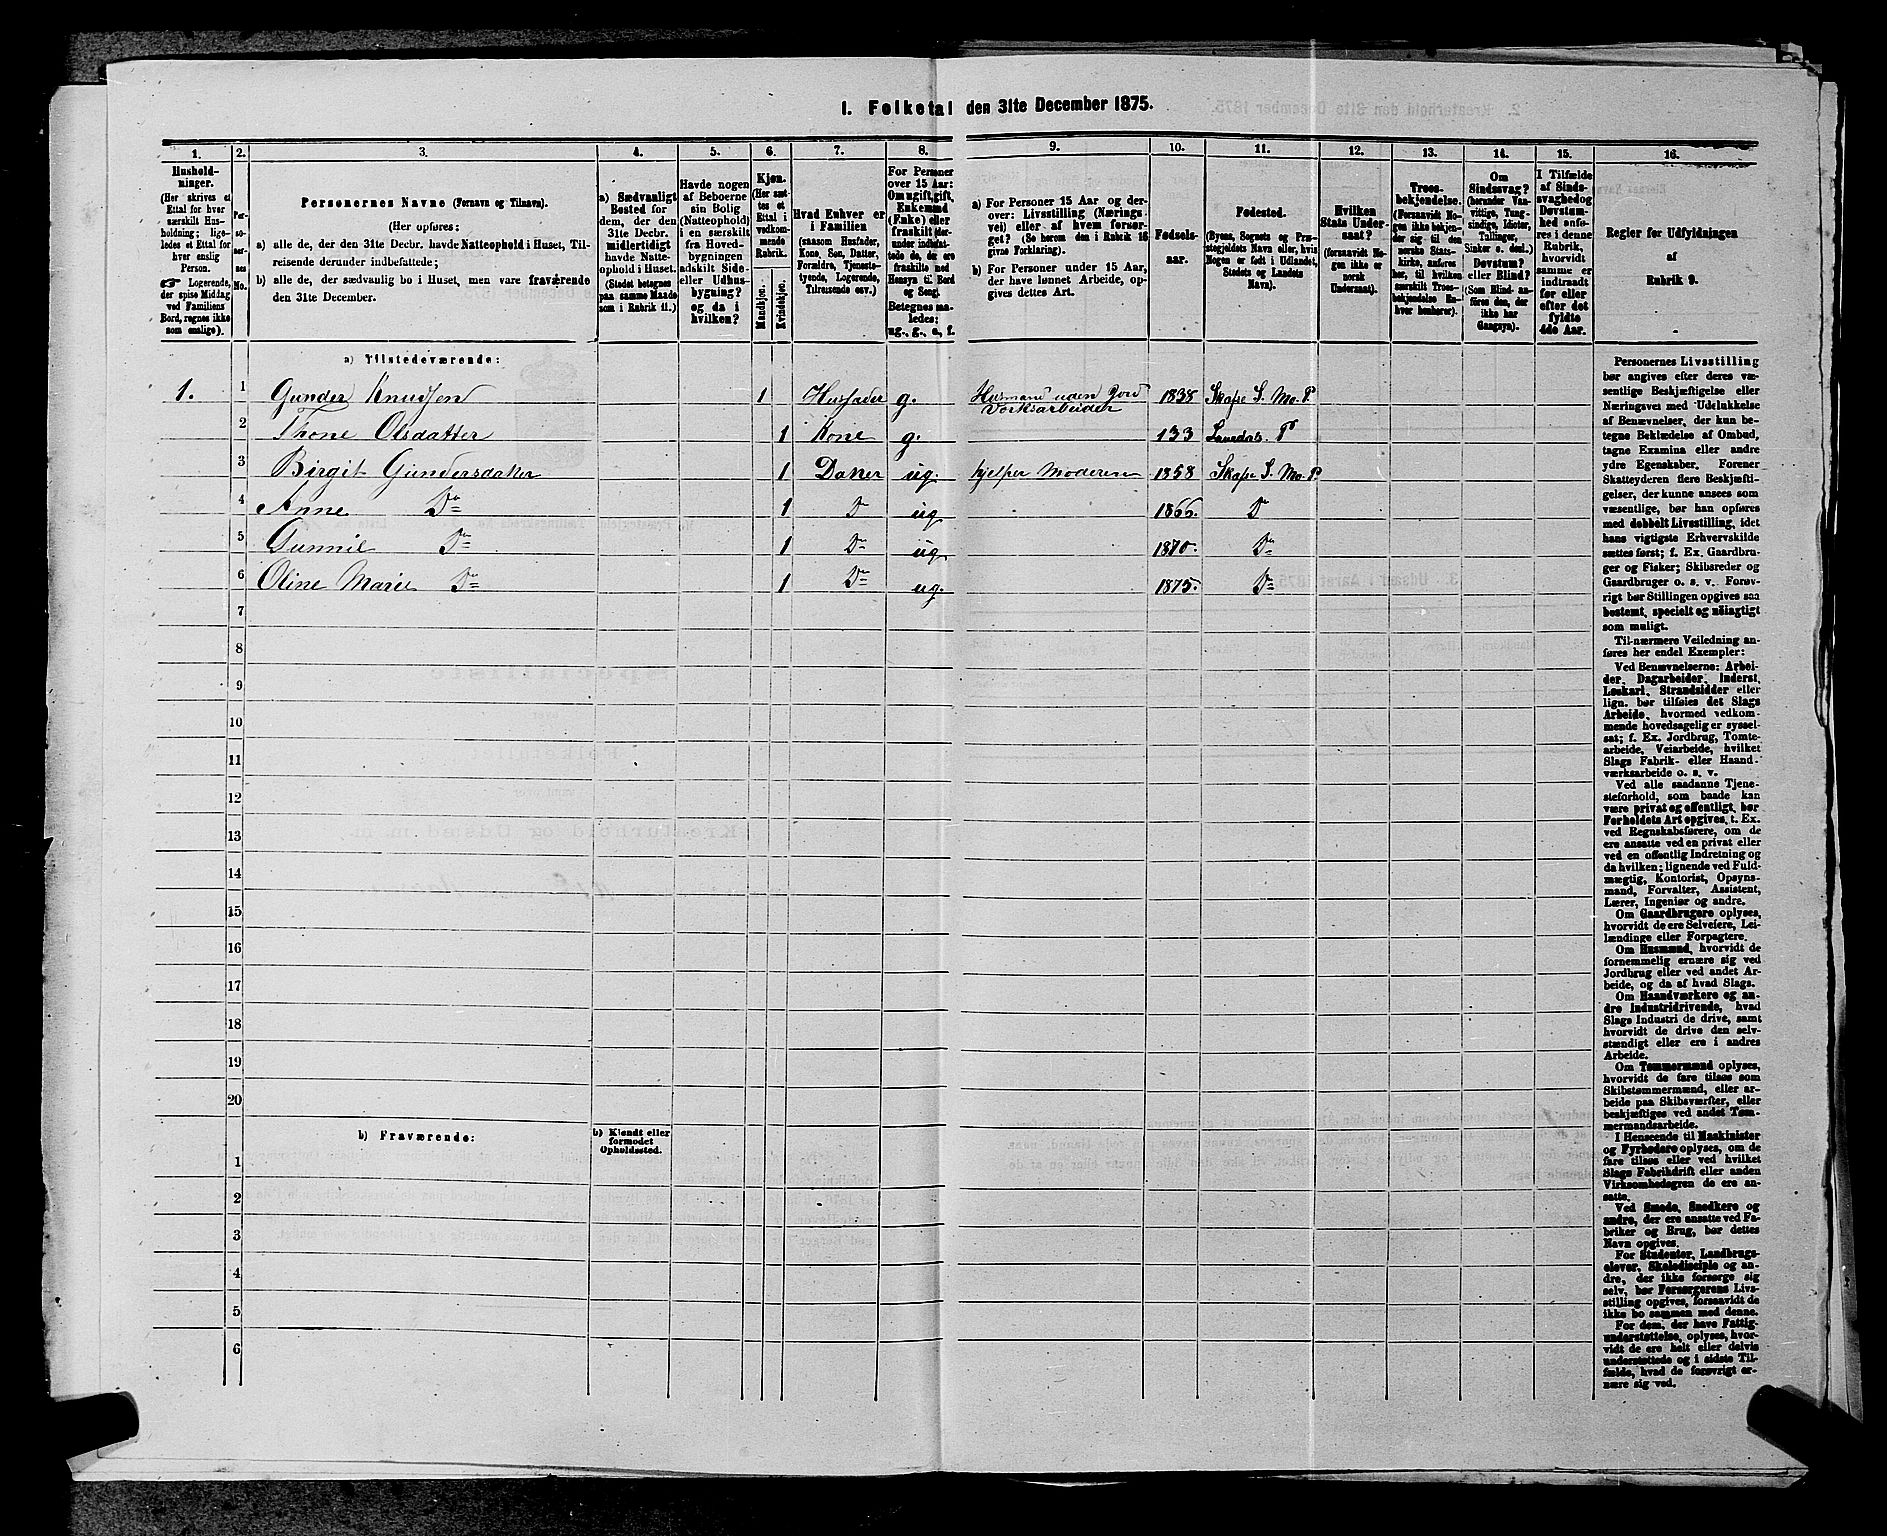 1. Folketal den 31te December 1875.
1. 2. 3. 4. 5. 6. 7. 8. 9. 10. 11. 12. 13. 14. 15. 16.
Hushold-
ninger.
(Her skrives et
Ettal for hver
særskilt Hus-
holdning; lige-
ledes et Ettal for
hver enslig
Person.
☞ Logerende,
der spise Middag
ved Familiens
Bord, regnes ikke
som enslige).
Per-
so-
ner-
nes
No.
Personernes Navne (Fornavn og Tilnavn).
(Her opføres:
a) alle de, der den 31te Decbr. havde Natteophold i Huset, Til-
reisende derunder indbefattede;
b) alle de, der sædvanlig bo i Huset, men vare fraværende
den 31te December.
a) Sædvanligt
Bosted for
dem, der den
31te Decbr.
midlertidigt
havde Natte-
ophold i Huset.
(Stedet betegnes
paa samme Maade
som i Rubrik 11.)
Havde nogen
af Beboerne
sin Bolig
(Natteophold)
i en særskilt
fra Hoved-
bygningen
adskilt Side-
eller Udhus-
bygning?
og da i
hvilken?
Kjøn.
(Her sæt-
tes et
Ettal i
vedkom-
mende
Rubrik.
Mandkjøn.
Kvindekjøn.
Hvad Enhver er
i Familien
(saasom Husfader,
Kone, Søn, Datter,
Forældre, Tjeneste-
tyende, Logerende,
Tilreisende osv.)
For Personer
over 15 Aar:
Om ugift, gift,
Enkemand
(Enke) eller
fraskilt (der-
under indbefat-
tede de, der ere
fraskilte med
Hensyn til Bord
og Seng).
Betegnes saa-
ledes:
ug., g., e., f.
a) For Personer 15 Aar og der-
over: Livsstilling (Nærings-
vei) eller af hvem forsør-
get? (Se herom den i Rubrik 16
givne Forklaring).
b) For Personer under 15 Aar,
der have lønnet Arbeide, op-
gives dettes Art.
Fødsels-
aar.
Fødested.
(Byens, Sognets og Præ-
stegjeldets Navn eller, hvis
Nogen er født i Udlandet,
Stedets og Landets
Navn).
Hvilken
Stats Under-
saat?
(forsaavidt No-
gen ikke er
norsk
Undersaat).
Troes-
bekjendelse.
(Forsaavidt No-
gen ikke bekjen-
der sig til den
norske Stats-
kirke, anføres
her, til hvilken
særskilt Troes-
bekjendelse En-
hver henhører).
Om
Sindssvag?
(herunder Van-
vittige, Tung-
sindige, Idioter,
Tullinger,
Sinker o. desl.)
Døvstum?
eller Blind?
(Som Blind an-
føres den, der
ikke har
Gangsyn).
I Tilfælde
af Sinds-
svaghed og
Døvstum-
hed anfø-
res i denne
Rubrik,
hvorvidt
samme er
indtraadt
før eller
efter det
fyldte
4de Aar.
Regler for Udfyldningen
af
Rubrik 9.
a) Tilstedeværende:
1. 1 Gunder Knudsen 1 Husfader g. Husmand uden Jord 1838 Skafse S. Mo. P.
2 Thone Olsdatter 1 Kone g. 133 P
3 Birgit Gundersdatter 1 Datter ug. hjelper Moderen 1858 Skafse S. Mo. P.
4 Anne Do 1 D ug 1866. D
5 Gunnil Do 1 Do ug. 1870. Do
6 Oline Marie Do 1 Do ug. 1875. Do
7
8
9
10
11
12
13
14
15
16
17
18
19
20
b) Fraværende:
b) Kjendt eller
formodet
Opholdssted.
1
2
3
4
5
6
Personernes Livsstilling
bør angives efter deres væ-
sentlige Beskjæftigelse eller
Næringsvei med Udelukkelse
af Benævnelser, der kun be-
tegne Beklædelse af Ombud,
tagne Examina eller andre
ydre Egenskaber. Forener
Skatteyderen flere Beskjæfti-
gelser, der kunne ansees som
væsentlige, bør han opføres
med dobbelt Livsstilling, idet
hans vigtigste Erhvervskilde
sættes først; f. Ex. Gaardbru-
ger og Fisker; Skibsreder og
Gaardbruger o. s. v. Forøv-
rigt bør Stillingen opgives saa
bestemt, specielt og nøiagtigt
som muligt.
Til nærmere Veiledning an-
føres her endel Exempler:
Ved Benævnelserne: Arbei-
der, Dagarbeider, Inderst,
Løskarl, Strandsidder eller
lign. bør tilføies det Slags
Arbeide, hvormed vedkom-
mende hovedsagelig er syssel-
sat; f. Ex. Jordbrug, Tomte-
arbeide, Veiarbeide, hvilket
Slags Fabrik- eller Haand-
værksarbeide o. s. v.
Ved alle saadanne Tjene-
steforhold, som baade kan
være privat og offentligt, bør
Forholdets Art opgives, t. Ex.
ved Regnskabsførere, om de
ere ansatte ved en privat eller
ved en offentlig Indretning og
da hvilken; lignende ved Fuld-
mægtig, Kontorist, Opsyns-
mand, Forvalter, Assistent,
Lærer, Ingeniør og andre.
Om Gaardbrugere oplyses,
hvorvidt de ere Selveiere, Lei-
lændinge eller Forpagtere.
Om Husmænd, hvorvidt de
fornemmelig ernære sig ved
Jordbrug eller ved andet Ar-
beide, og da af hvad Slags.
Om Haandværkere og an-
dre Industridrivende, hvad
Slags Industri de drive, samt
hvorvidt de drive den selv-
stændigt eller ere i andres
Arbeide.
Om Tømmermænd oplyses,
hvorvidt de fare tilsøs som
Skibstømmermænd, eller ar-
beide paa Skibsværfter, eller
beskjæftiges ved andet Tøm-
mermandsarbeide.
I Henseende til Maskinister
og Fyrbødere oplyses, om de
fare tilsøs eller ved hvilket
Slags Fabrikdrift eller anden
Virksomhedsgren de ere an-
satte.
Ved Smede, Snedkere og
andre, der ere ansatte ved Fa-
briker og Brug, bør dettes
Navn opgives.
For Studenter, Landbrugs-
elever, Skoledisciple og an-
dre, der ikke forsørge sig
selv, bør Forsørgerens Livs-
stilling opgives, forsaavidt de
ikke bo sammen med denne.
For dem, der have Fattig-
understøttelse, oplyses, hvor-
vidt de ere helt eller delvis
understøttede og i sidste Til-
fælde, hvad de forøvrigt er-
nære sig ved.